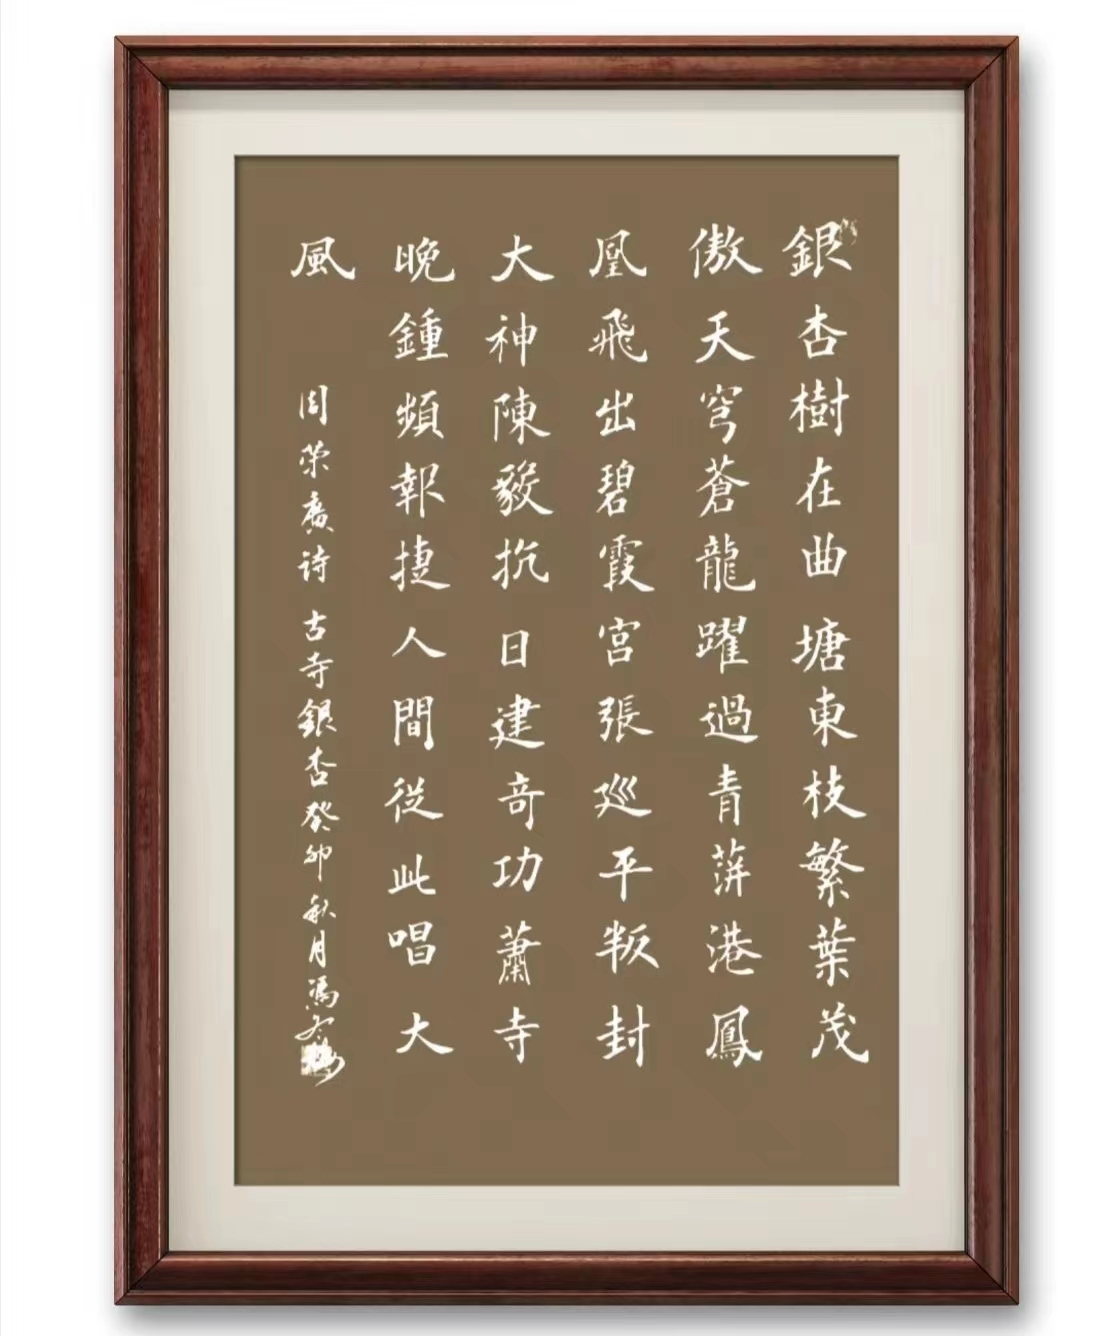 銀杏樹在曲塘東枝繁葉茂
傲天穹蒼龍躍過青蓱港鳳
凰飛出碧霞宮張巡平叛封
大神陳毅抗日建奇功蕭寺
晚鍾頻報捷人間從此唱大
風
周榮廣诗古寺銀杏癸卯秋月馮